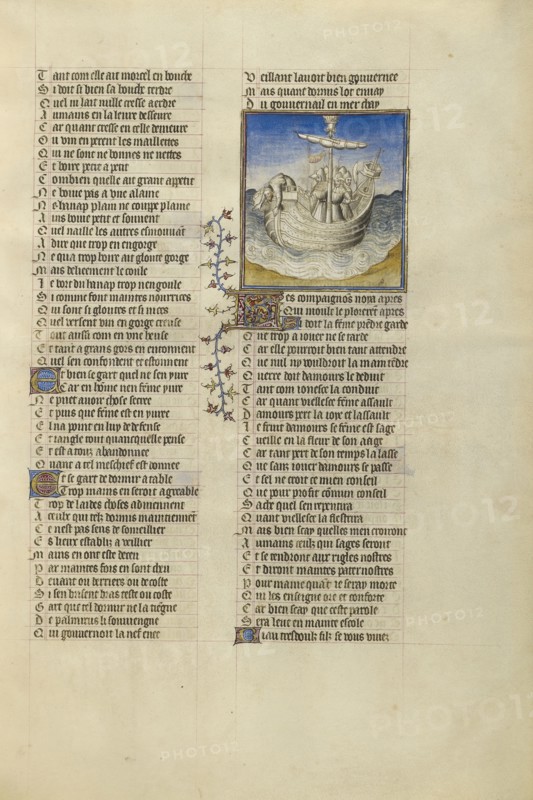 Tant com elle ait morcel en bouche
Si doit si bien sa bouche terdre
Quel ni lait nulle cresse aerdre
Aumains en la leure desseure
Car quant cresse en celle demeure
Ou vin en perent les maillettes
Qui ne sont ne bonnes ne nettes
Et boiue petit a petit
Combien quelle ait grant appetit
Ne boiue pas a vne alaine
Ne hanap plain ne couppe plaine
Ains boiue petit et souuent
Quel naille les autres esmouuant
A dire que trop en engorge
Ne qua trop boiue a gloute gorge
Mais delieement le coule
Le bort du hanap trop nengoule
Si comme font maintes nourrices
Qui sont si gloutes et si nices
Quel versent vin en gorge creuse
Tout aussi com en vne heuse
Et tant a grans gors en entonnent
Quel sen confondent et estonnent
Et bien se gart quel ne sen yure
Car en home nen feme yure
Ne puet auoir chose secree
Et puis que feme est en yuree
El na point en luy de defense
Et iangle tout quancquelle pense
Et est a touz abandonnee
Quant a tel meschief est donnee
Et se gart de dormir a table
Trop mains en seroit agreable
Trop de laides choses aduiennent
A ceulx qui telz dormirs maintiennent
Ce nest pas sens de sommeillier
Es lieux establiz a veillier
Mains en ont este deceu
Par maintes fois en sont cheu
Deuant ou derriere ou de coste
Si sen brisent bras teste ou coste
Gart que tel dormir ne la tiegne
De palinurus li souuiengne
Qui gouuernoit la nef enee
Veillant lauoit bien gouuernee
Mais quant dormir lot enuay
Du gouuernail en mer chay
Et ses compaignons noia apres
Qui moult le plorerent apres
Si doit la feme prendre garde
Que trop a iouer ne se tarde
Car elle pourroit bien tant attendre
Que nul ny vouldroit la main tendre
Querre doit damours le deduit
Tant com ionesse la conduit
Car quant viellesse feme assault
Damours pert la ioye et lassault
Le fruit damours se feme est sage
Cueille en la fleur de son aage
Car tant pert de son temps la lasse
Que sanz iouer damours se passe
Et sel ne croit ce mien conseil
Que pour profit commun conseil
Sache quel sen repentira
Quant viellesse la flestrira
Mais bien scay quelles men croiront
Aumains ceulx qui sages seront
Et se tendront aux rigles nostres
Et diront maintes paternostres
Pour mame quant ie seray morte
Qui les enseigne ore et conforte
Car bien scay que ceste parole
Sera leue en mainte escole
Biau tresdoulz filz se vous viuez
PHOTO12